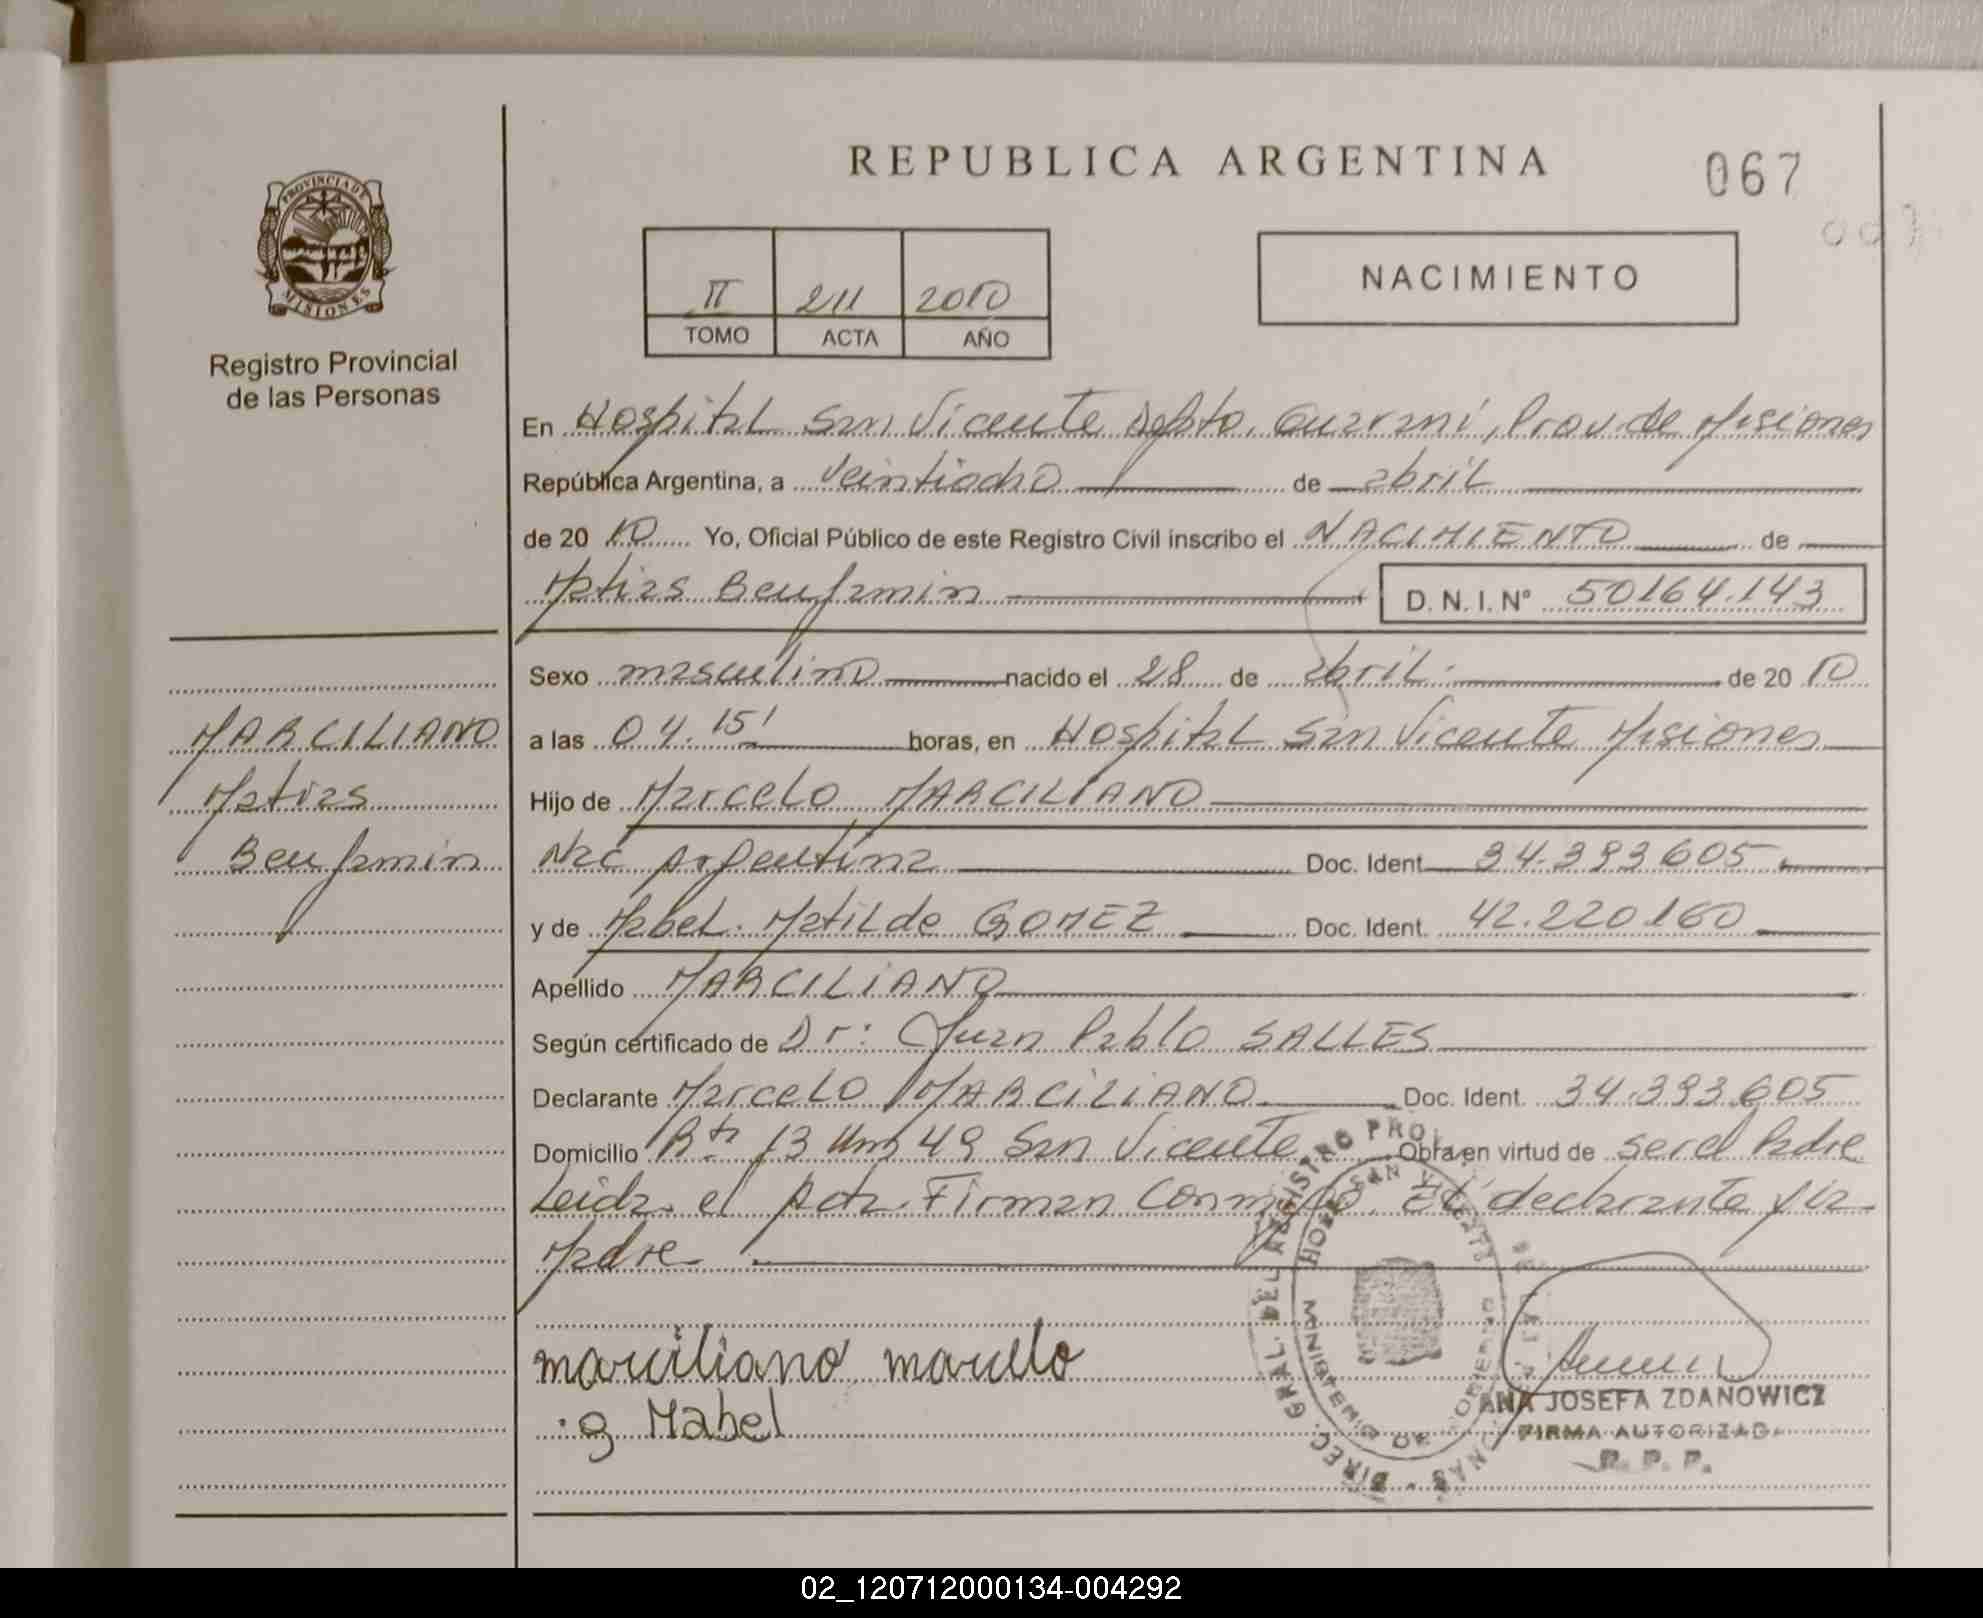 REPUBLICA ARGENTINA
067
PROVINCIA DE
MISIONES
Registro Provincial
de las Personas
II 211 2010
TOMO ACTA AÑO
NACIMIENTO
En Hospital San Vicente Depto. Guaraní, Prov. de Misiones
República Argentina, a veintiocho de abril
de 2010 Yo, Oficial Público de este Registro Civil inscribo el NACIMIENTO de
Matias Benjamin D. N. I. N° 50164.143
Sexo masculino nacido el 28 de abril. de 2010
a las 04.15' horas, en Hospital San Vicente Misiones
Hijo de Marcelo MARCILIANO
Nac Argentina Doc. Ident. 34.393.605.
y de Mabel. Matilde GOMEZ Doc. Ident. 42.220.160
Apellido MARCILIANO
Según certificado de Dr: Juan Pablo SALLES
Declarante Marcelo MARCILIANO Doc. Ident. 34.393.605
Domicilio Rta 13 Km 49 San Vicente Obra en virtud de ser el Padre
Leida el Acta Firman Conmigo. El declarante y la
Madre
MARCILIANO
Matias
Benjamin
marciliano marcelo
g Mabel
DIREC. GRAL. DEL REGISTRO PRO
HOSP. SAN VICENTE
MINISTERIO DE GOBIERNO
ANA JOSEFA ZDANOWICZ
FIRMA AUTORIZADA
R. P. P.
02_120712000134-004292